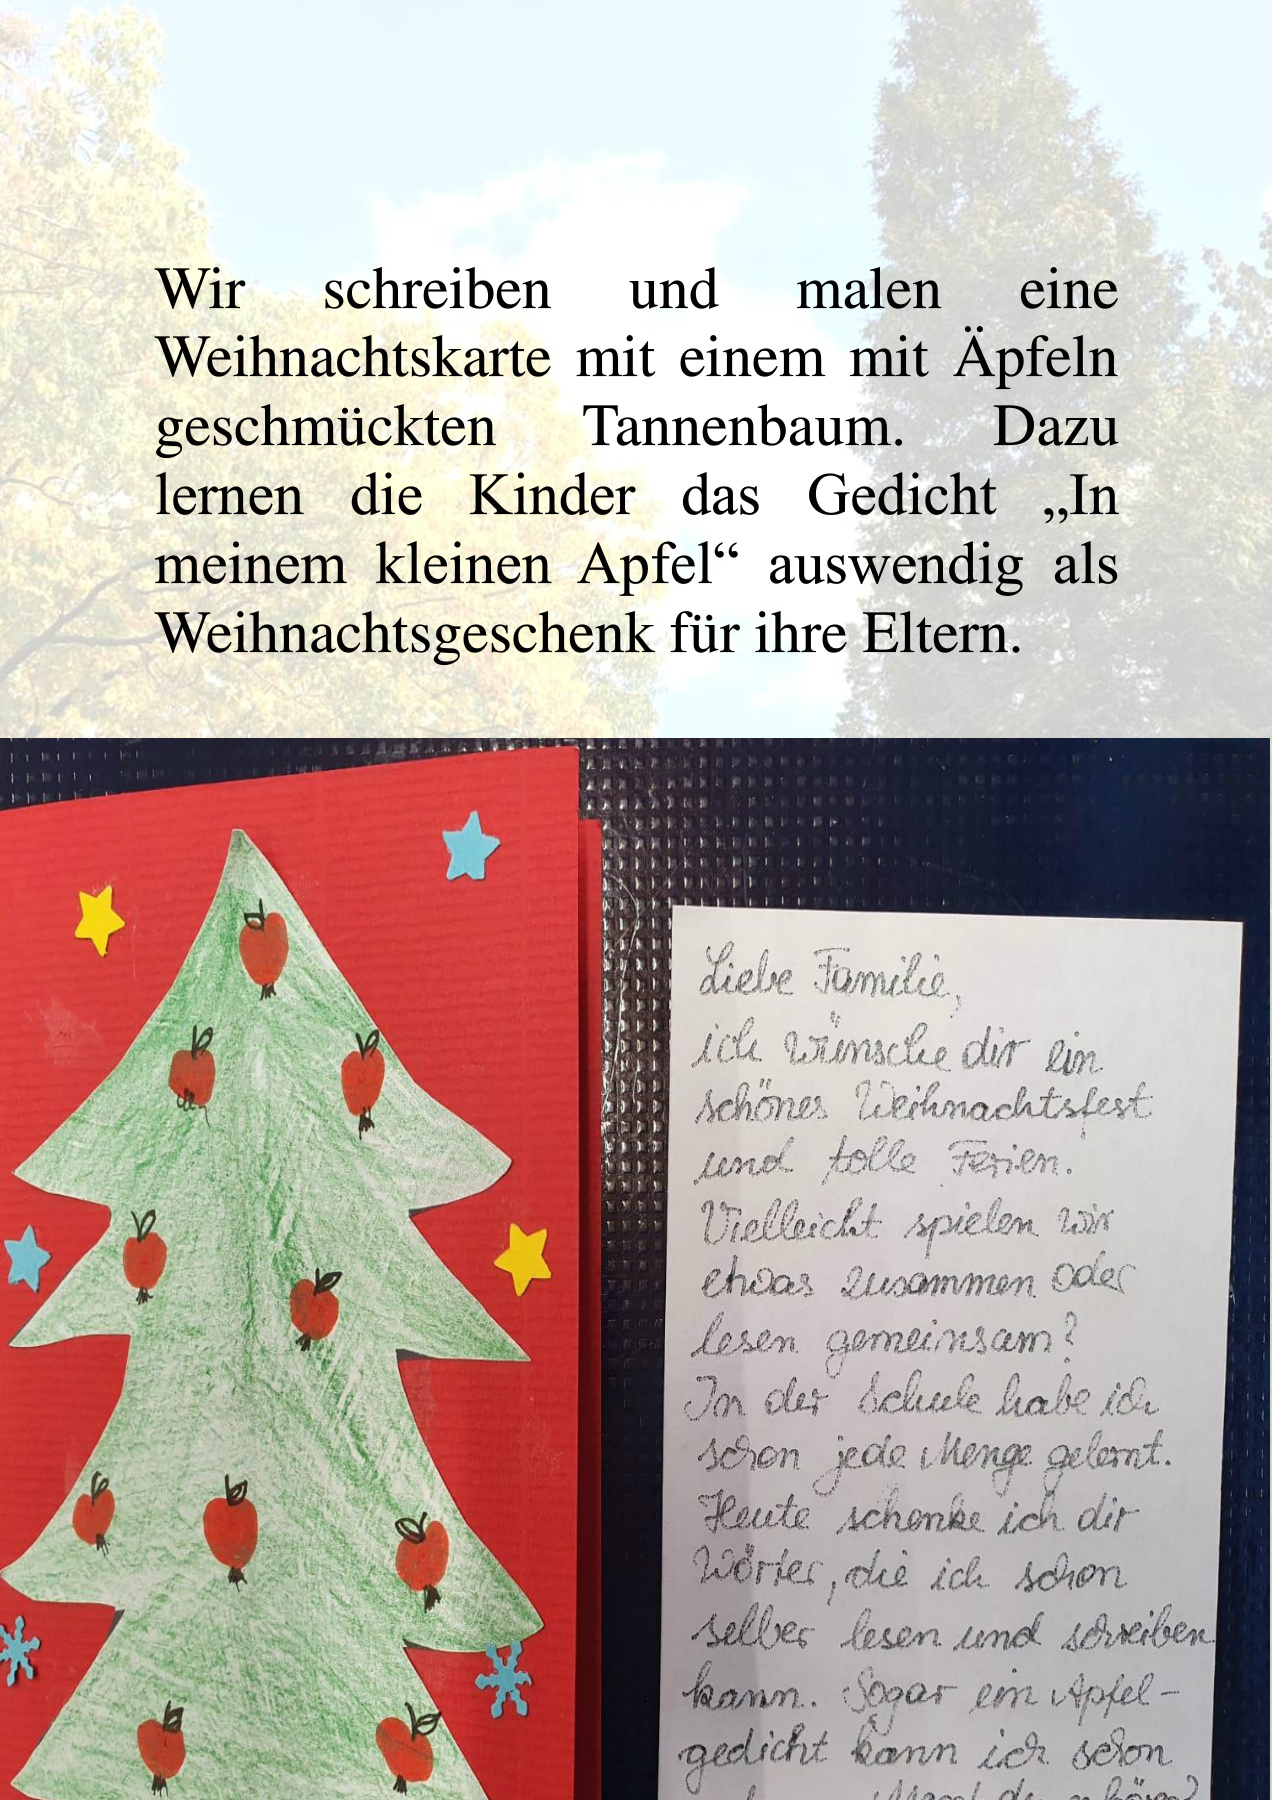 Wir schreiben und malen eine
Weihnachtskarte mit einem mit Äpfeln
geschmückten Tannenbaum. Dazu
lernen die Kinder das Gedicht „In
meinem kleinen Apfel“ auswendig als
Weihnachtsgeschenk für ihre Eltern.
Liebe Familie,
ich wünsche dir ein
schönes Weihnachtsfest
und tolle Ferien.
Vielleicht spielen wir
etwas zusammen oder
lesen gemeinsam?
In der Schule habe ich
schon jede Menge gelernt.
Heute schenke ich dir
Wörter, die ich schon
selber lesen und schreiben
kann. Sogar ein Apfel-
gedicht kann ich schon